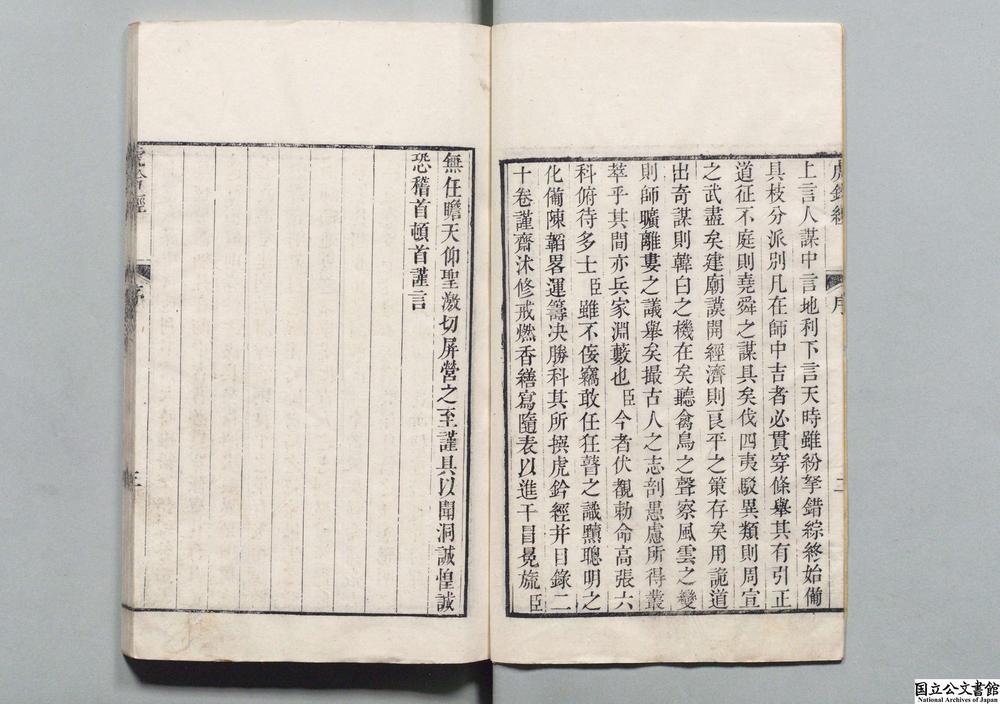 虎鈐經
序
二
上言人謀中言地利下言天時雖紛拏錯綜終始備
具枝分派別凡在師中吉者必貫穿條舉其有引正
道征不庭則堯舜之謀具矣伐四夷駁異類則周宣
之武盡矣建廟謨開經濟則良平之策存矣用詭道
出奇謀則韓白之機在矣聽禽鳥之聲察風雲之變
則師曠離婁之議舉矣撮古人之志剖愚慮所得叢
萃乎其間亦兵家淵藪也臣今者伏覩勅命高張六
科俯待多士臣雖不佞竊敢任狂瞽之識黷聰明之
化備陳韜畧運籌决勝科其所撰虎鈐經并目錄二
十卷謹齋沐修戒燃香繕寫隨表以進干冒冕旒臣
無任瞻天仰聖激切屏營之至謹具以聞洞誠惶誠
恐稽首頓首謹言
虎鈐經
序
三
国立公文書館
National Archives of Japan